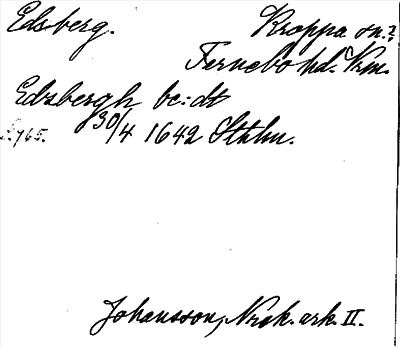 Edsberg. Kroppa sn.?
Fernebo hd. Vrm.
Edzbergh be: dt
30/4 1642 Sthlm.
Johansson, Nrck. ark. II.